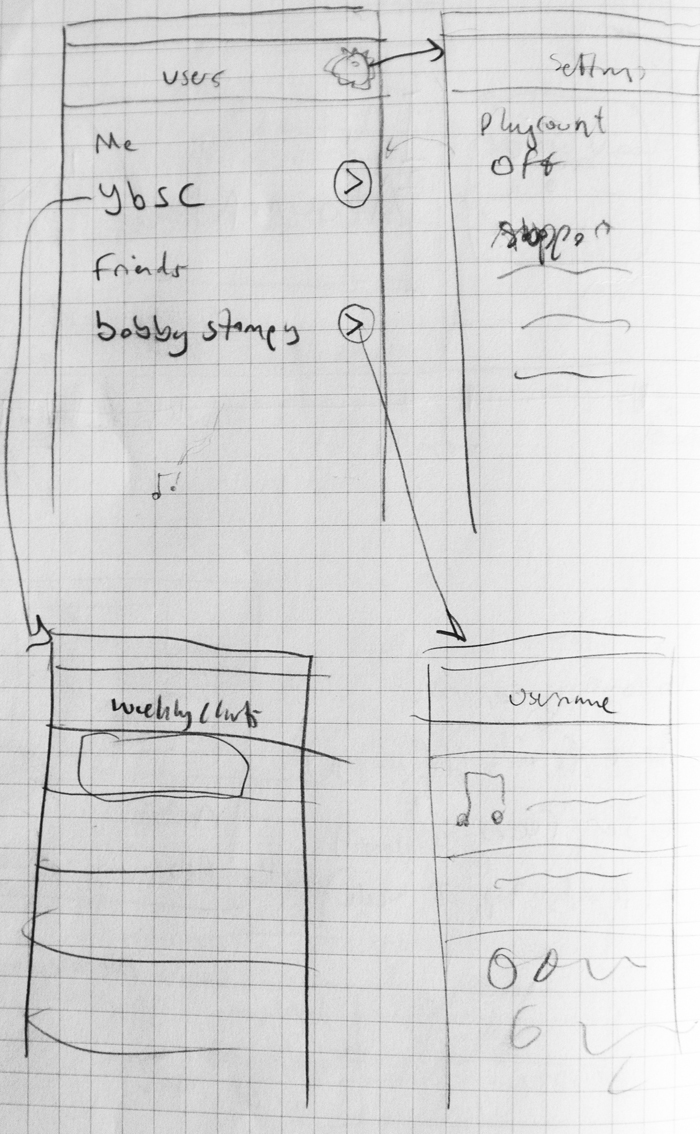 users
Me
ybsc
Friends
bobby stampy
Settings
Playcount
off
weekly charts
username